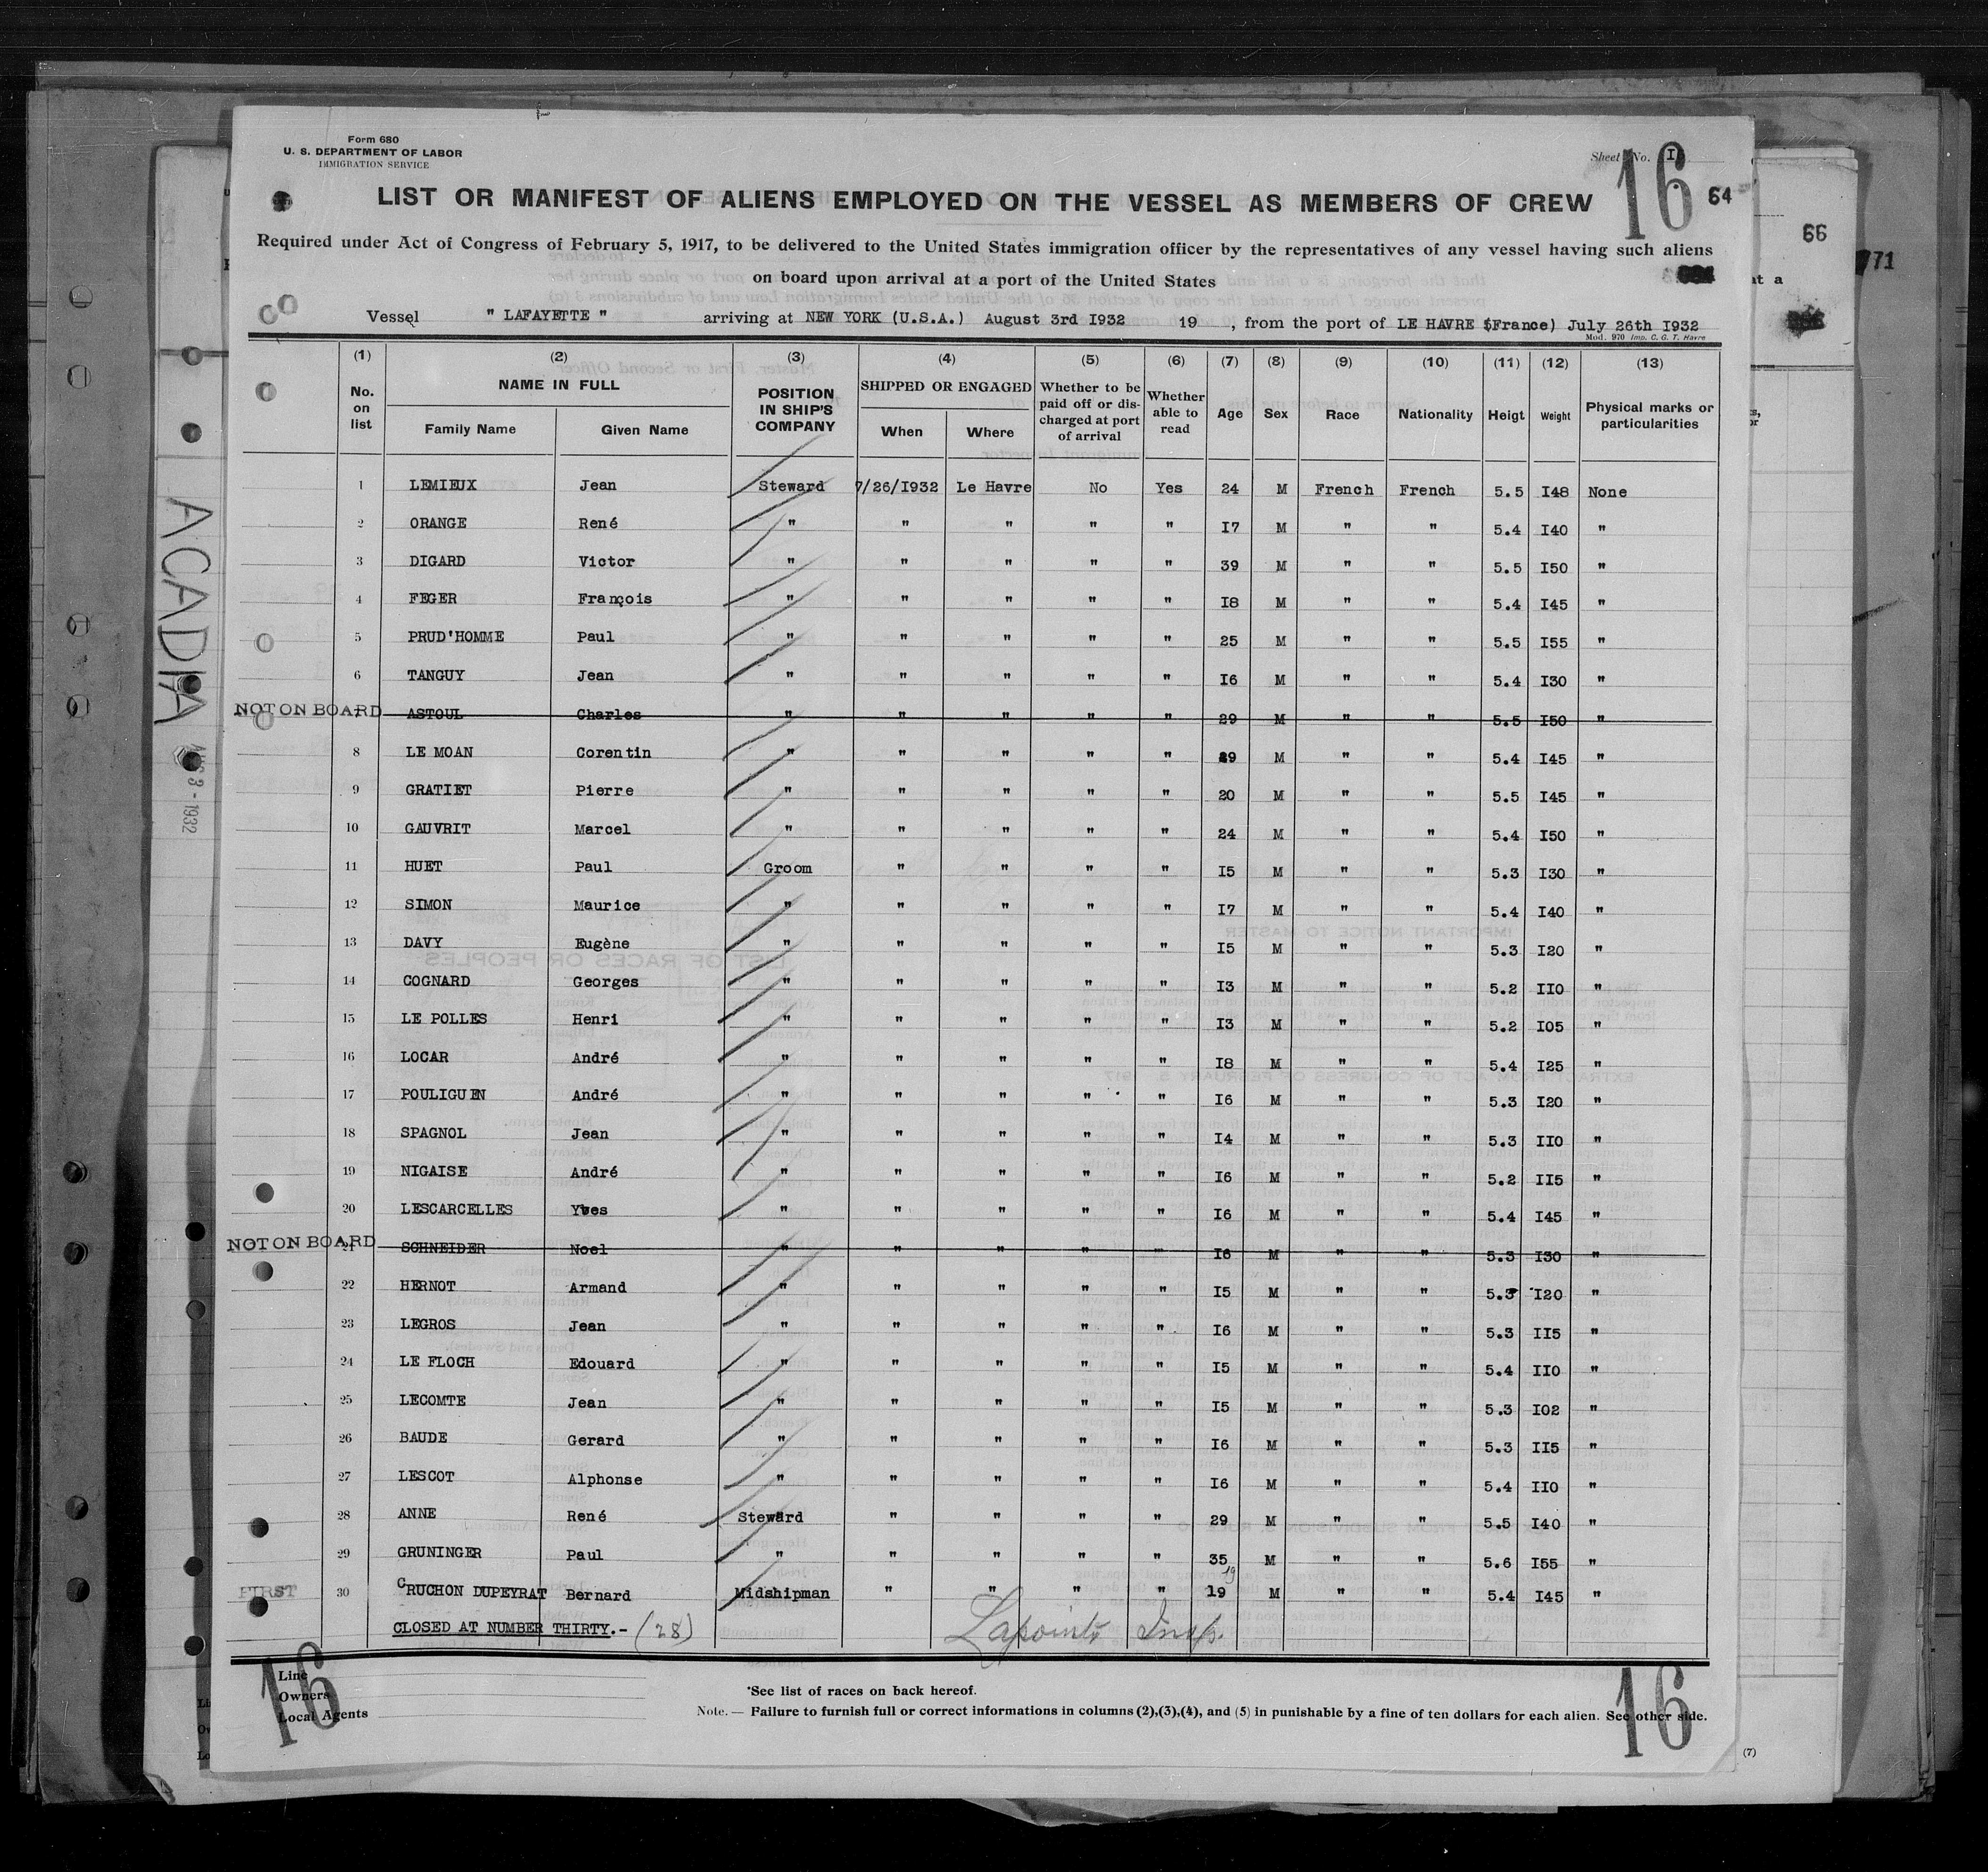 Form 680
U. S. DEPARTMENT OF LABOR
IMMIGRATION SERVICE
Sheet No. I
16
64
LIST OR MANIFEST OF ALIENS EMPLOYED ON THE VESSEL AS MEMBERS OF CREW
Required under Act of Congress of February 5, 1917, to be delivered to the United States immigration officer by the representatives of any vessel having such aliens
on board upon arrival at a port of the United States
Vessel " LAFAYETTE " arriving at NEW YORK (U.S.A.) August 3rd I932 19 , from the port of LE HAVRE (France) July 26th I932
Mod. 970 Imp. C. G. T. Havre
(1) (2) (3) (4) (5) (6) (7) (8) (9) (10) (11) (12) (13)
No. on list NAME IN FULL Family Name Given Name POSITION IN SHIP'S COMPANY SHIPPED OR ENGAGED When Where Whether to be paid off or discharged at port of arrival Whether able to read Age Sex Race Nationality Heigt Weight Physical marks or particularities
1 LEMIEUX Jean Steward 7/26/I932 Le Havre No Yes 24 M French French 5.5 I48 None
2 ORANGE René " " " " " I7 M " " 5.4 I40 "
3 DIGARD Victor " " " " " 39 M " " 5.5 I50 "
4 FEGER François " " " " " I8 M " " 5.4 I45 "
5 PRUD'HOMME Paul " " " " " 25 M " " 5.5 I55 "
6 TANGUY Jean " " " " " I6 M " " 5.4 I30 "
NOT ON BOARD ASTOUL Charles " " " " " 29 M " " 5.5 I50 "
8 LE MOAN Corentin " " " " " 29 M " " 5.4 I45 "
9 GRATIET Pierre " " " " " 20 M " " 5.5 I45 "
10 GAUVRIT Marcel " " " " " 24 M " " 5.4 I50 "
11 HUET Paul Groom " " " " I5 M " " 5.3 I30 "
12 SIMON Maurice " " " " " I7 M " " 5.4 I40 "
13 DAVY Eugène " " " " " I5 M " " 5.3 I20 "
14 COGNARD Georges " " " " " I3 M " " 5.2 II0 "
15 LE POLLES Henri " " " " " I3 M " " 5.2 I05 "
16 LOCAR André " " " " " I8 M " " 5.4 I25 "
17 POULIGUEN André " " " " " I6 M " " 5.3 I20 "
18 SPAGNOL Jean " " " " " I4 M " " 5.3 II0 "
19 NIGAISE André " " " " " I6 M " " 5.2 II5 "
20 LESCARCELLES Yves " " " " " I6 M " " 5.4 I45 "
NOT ON BOARD 21 SCHNEIDER Noel " " " " " I6 M " " 5.3 I30 "
22 HERNOT Armand " " " " " I5 M " " 5.3 I20 "
23 LEGROS Jean " " " " " I6 M " " 5.3 II5 "
24 LE FLOCH Edouard " " " " " I5 M " " 5.4 II0 "
25 LECOMTE Jean " " " " " I5 M " " 5.3 I02 "
26 BAUDE Gerard " " " " " I6 M " " 5.3 II5 "
27 LESCOT Alphonse " " " " " I6 M " " 5.4 II0 "
28 ANNE René Steward " " " " 29 M " " 5.5 I40 "
29 GRUNINGER Paul " " " " " 35 M " " 5.6 I55 "
FIRST 30 CRUCHON DUPEYRAT Bernard Midshipman " " " " 19 19 M " " 5.4 I45 "
CLOSED AT NUMBER THIRTY.- (28) Lapointe Insp.
Line
Owners
Local Agents
16
*See list of races on back hereof.
Note. — Failure to furnish full or correct informations in columns (2),(3),(4), and (5) in punishable by a fine of ten dollars for each alien. See other side.
16
(7)
ACADIA
AUG 3 - 1932
66
71
nt a